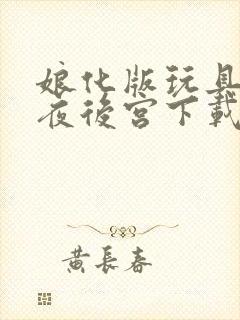 娘化版玩具
夜後宮下載
黃長春